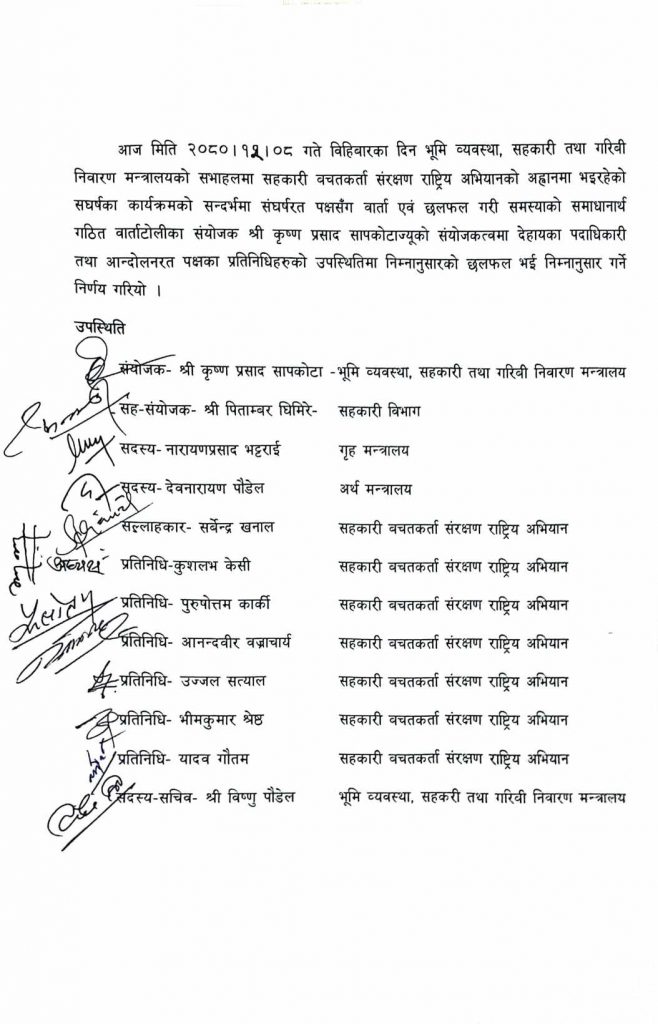 आज मिति २०८०।१२।०८ गते विहिवारका दिन भूमि व्यवस्था, सहकारी तथा गरिवी
निवारण मन्त्रालयको सभाहलमा सहकारी वचतकर्ता संरक्षण राष्ट्रिय अभियानको अह्वानमा भइरहेको
सघर्षका कार्यक्रमको सन्दर्भमा संघर्षरत पक्षसँग वार्ता एवं छलफल गरी समस्याको समाधानार्थ
गठित वार्ताटोलीका संयोजक श्री कृष्ण प्रसाद सापकोटाज्यूको संयोजकत्वमा देहायका पदाधिकारी
तथा आन्दोलनरत पक्षका प्रतिनिधिहरुको उपस्थितिमा निम्नानुसारको छलफल भई निम्नानुसार गर्ने
निर्णय गरियो ।
उपस्थिति
संयोजक- श्री कृष्ण प्रसाद सापकोटा -भूमि व्यवस्था, सहकारी तथा गरिवी निवारण मन्त्रालय
सह-संयोजक- श्री पिताम्बर घिमिरे- सहकारी विभाग
सदस्य- नारायणप्रसाद भट्टराई गृह मन्त्रालय
सदस्य- देवनारायण पौडेल अर्थ मन्त्रालय
सल्लाहकार- सर्बेन्द्र खनाल सहकारी वचतकर्ता संरक्षण राष्ट्रिय अभियान
अध्यक्ष प्रतिनिधि-कुशलभ केसी सहकारी वचतकर्ता संरक्षण राष्ट्रिय अभियान
प्रतिनिधि- पुरुषोत्तम कार्की सहकारी वचतकर्ता संरक्षण राष्ट्रिय अभियान
प्रतिनिधि- आनन्दवीर वज्राचार्य सहकारी वचतकर्ता संरक्षण राष्ट्रिय अभियान
प्रतिनिधि- उज्जल सत्याल सहकारी वचतकर्ता संरक्षण राष्ट्रिय अभियान
प्रतिनिधि- भीमकुमार श्रेष्ठ सहकारी वचतकर्ता संरक्षण राष्ट्रिय अभियान
प्रतिनिधि- यादव गौतम सहकारी वचतकर्ता संरक्षण राष्ट्रिय अभियान
सदस्य-सचिव- श्री विष्णु पौडेल भूमि व्यवस्था, सहकरी तथा गरिवी निवारण मन्त्रालय